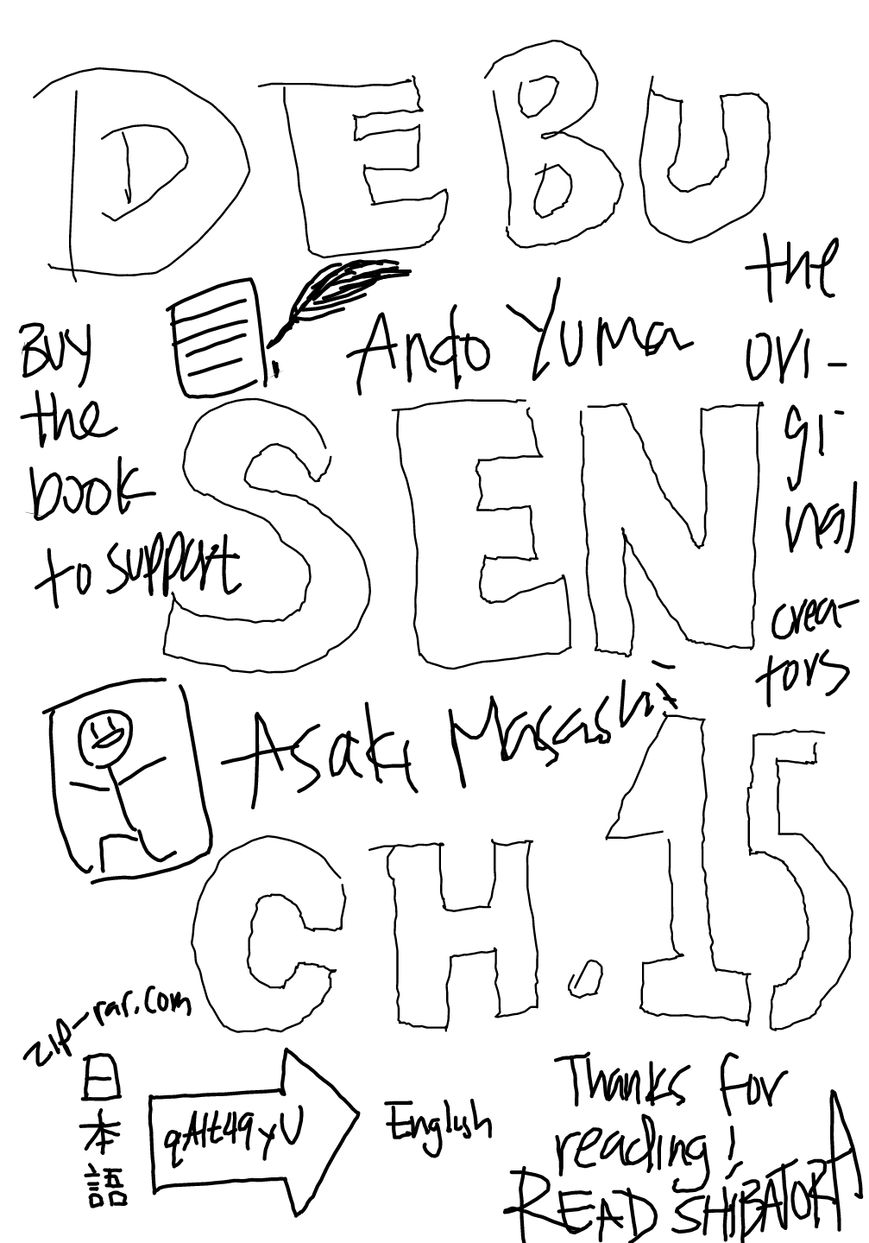 DEBU
Ando Yuma
SEN
Asaki Masashi
CH.15
Buy
the
book
to support
the
ori-
gi-
nal
crea-
tors
zip-rar.com
日本語
English
Thanks for
reading!
READ SHIBATORA